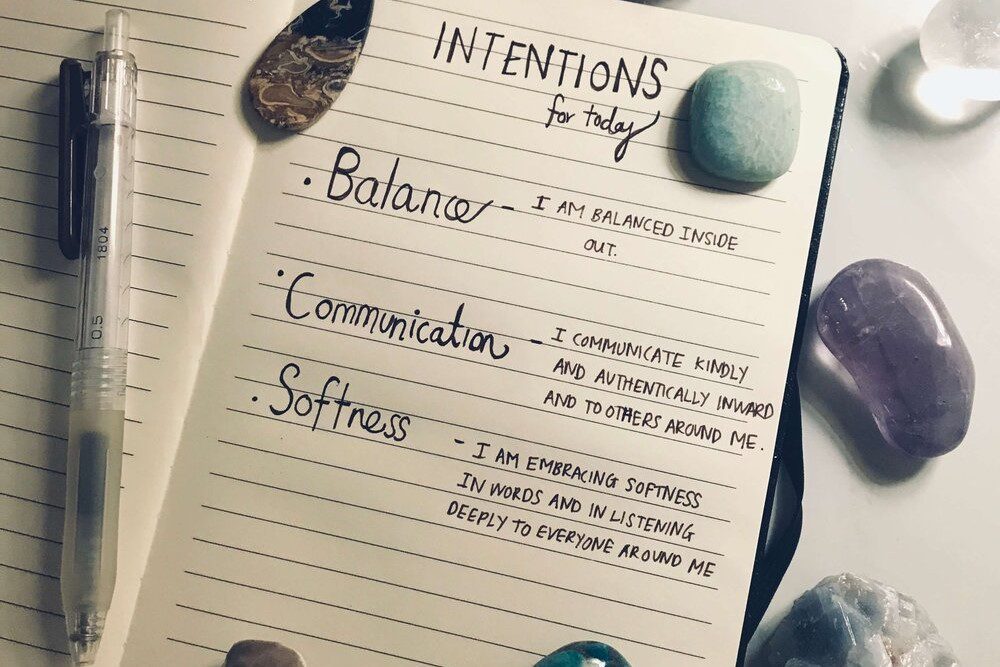 INTENTIONS
for today
• Balance - I AM BALANCED INSIDE
OUT.
• Communication - I COMMUNICATE KINDLY
AND AUTHENTICALLY INWARD
AND TO OTHERS AROUND ME.
• Softness - I AM EMBRACING SOFTNESS
IN WORDS AND IN LISTENING
DEEPLY TO EVERYONE AROUND ME
0.5 1804